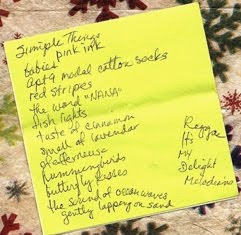 Simple Things
pink ink
babies
apt 9 modal cotton socks
red stripes
the word "NANA"
fish fights
taste of cinnamon
smell of lavender
hummingbirds
butterfly kisses
the sound of ocean waves
gently lapping on sand
Its
My
Delight